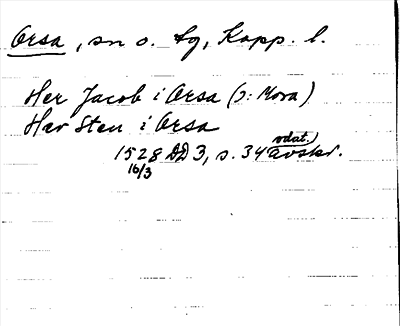 Orsa, sn o. tg, Kopp. l.
Her Jacob i Orsa (ɔ: Mora)
Her Sten i Orsa
1528 DD 3, s. 34 avskr.
16/3
odat.